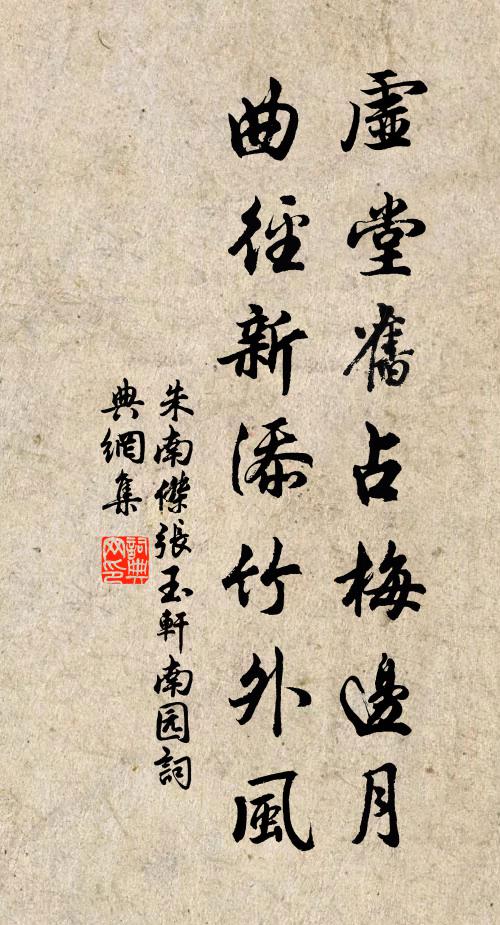 虛堂舊占梅邊月
曲徑新添竹外風
朱南傑張玉軒南园詞
典網集
詞典
网印